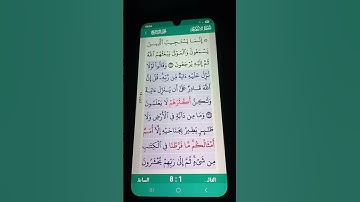 ۞ إِنَّمَا يَسْتَجِيبُ ٱلَّذِينَ
يَسْمَعُونَ وَٱلْمَوْتَىٰ يَبْعَثُهُمُ ٱللَّهُ
ثُمَّ إِلَيْهِ يُرْجَعُونَ وَقَالُوا۟ لَوْلَا
نُزِّلَ عَلَيْهِ ءَايَةٌ مِّن رَّبِّهِۦ قُلْ إِنَّ
ٱللَّهَ قَادِرٌ عَلَىٰٓ أَن يُنَزِّلَ ءَايَةً
وَلَٰكِنَّ أَكْثَرَهُمْ لَا يَعْلَمُونَ
وَمَا مِن دَآبَّةٍ فِى ٱلْأَرْضِ وَلَا
طَٰٓئِرٍ يَطِيرُ بِجَنَاحَيْهِ إِلَّآ أُمَمٌ
أَمْثَالُكُم مَّا فَرَّطْنَا فِى ٱلْكِتَٰبِ
مِن شَىْءٍ ثُمَّ إِلَىٰ رَبِّهِمْ يُحْشَرُونَ
8:1 السابق